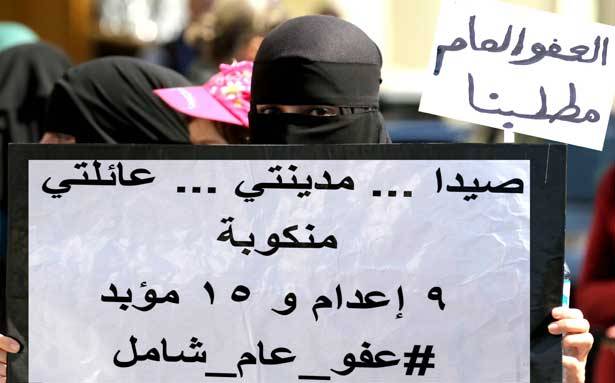 العفو العام
مطلبنا
صيدا ... مدينتي ... عائلتي
منكوبة
٩ إعدام و ١٥ مؤبد
#عفو_عام_شامل